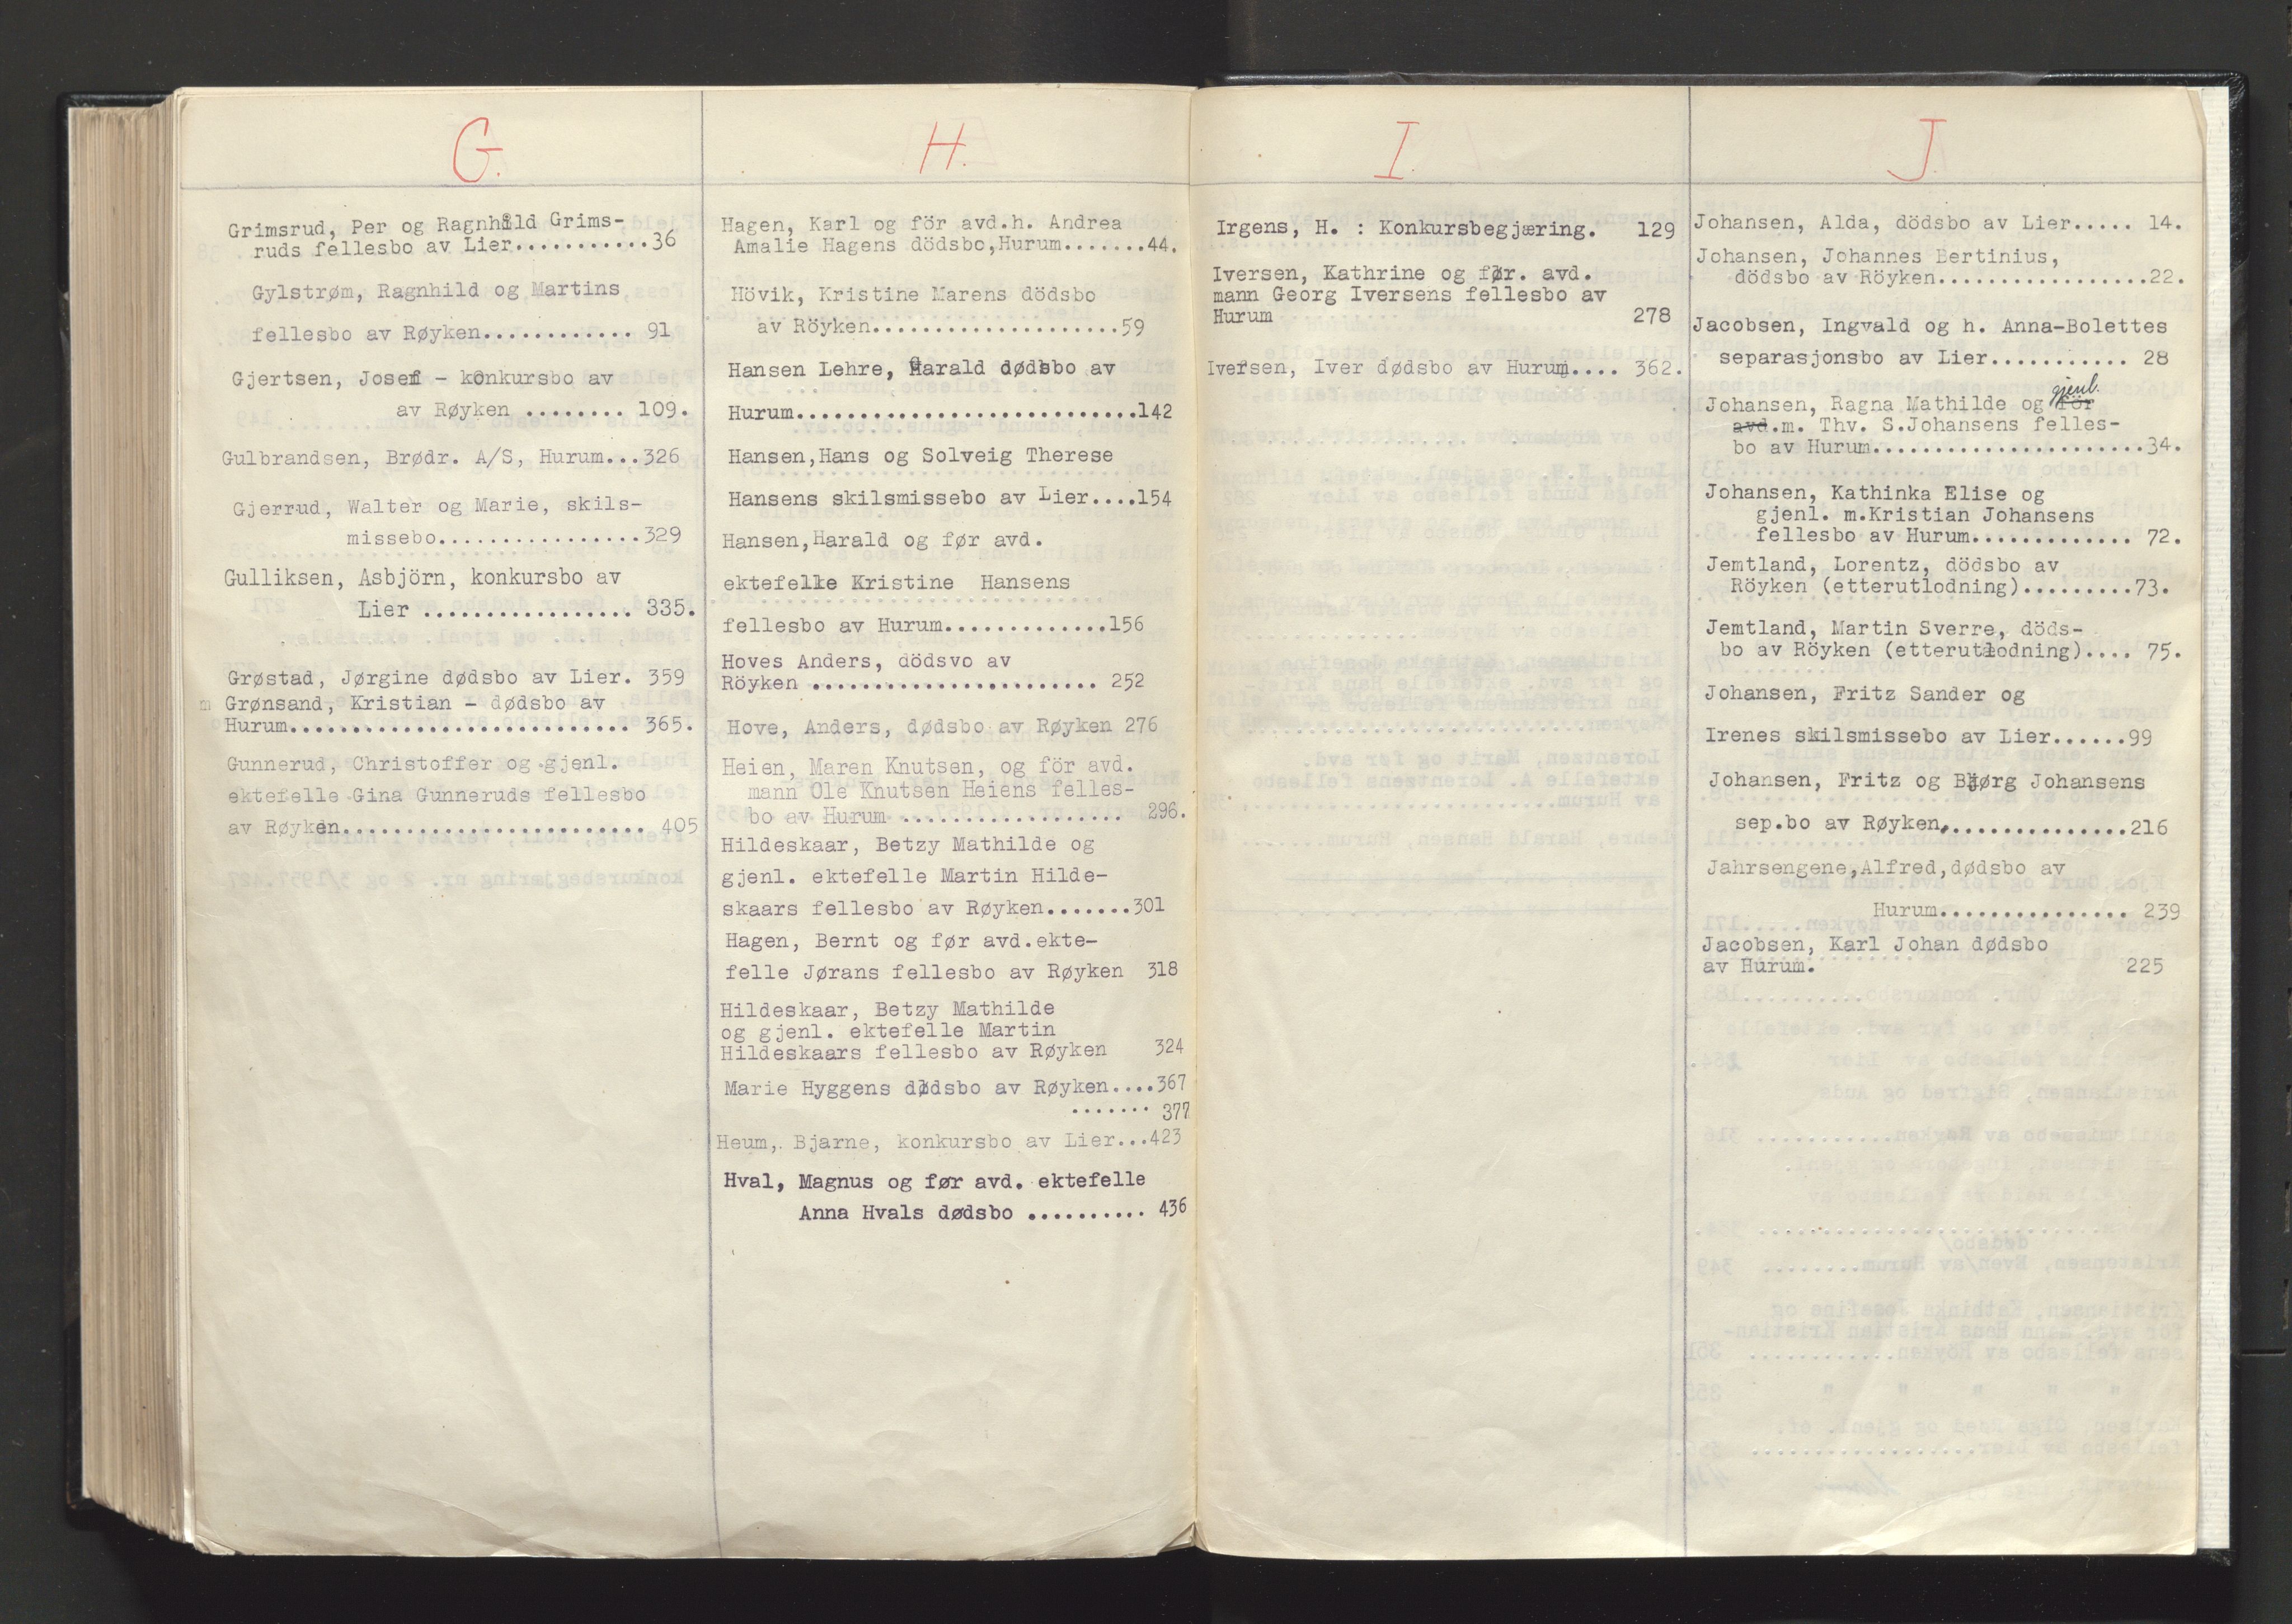 G.
Grimsrud, Per og Ragnhild Grims-
ruds fellesbo av Lier...........36
Gylstrøm, Ragnhild og Martins
fellesbo av Røyken............ 91
Gjertsen, Josef - konkursbo av
av Røyken ........ 109.
Gulbrandsen, Brødr. A/S, Hurum...326
Gjerrud, Walter og Marie, skils-
missebo................329
Gulliksen, Asbjörn, konkursbo av
Lier ................. 335.
Grøstad, Jørgine dødsbo av Lier. 359
m Grønsand, Kristian - dødsbo av
Hurum........................... 365.
Gunnerud, Christoffer og gjenl.
ektefelle Gina Gunneruds fellesbo
av Røyken........................ 405
H.
Hagen, Karl og för avd.h. Andrea
Amalie Hagens dödsbo,Hurum.......44.
Hövik, Kristine Marens dödsbo
av Röyken....................59
Hansen Lehre, Harald dødsbo av
Hurum...........................142
Hansen,Hans og Solveig Therese
Hansens skilsmissebo av Lier....154
Hansen,Harald og før avd.
ektefelle Kristine Hansens
fellesbo av Hurum.............156
Hoves Anders, dödsvo av
Röyken ....................... 252
Hove, Anders, dødsbo av Røyken 276
Heien, Maren Knutsen, og för avd.
mann Ole Knutsen Heiens felles-
bo av Hurum .................. 296.
Hildeskaar, Betzy Mathilde og
gjenl. ektefelle Martin Hilde-
skaars fellesbo av Røyken.......301
Hagen, Bernt og før avd.ekte-
felle Jørans fellesbo av Røyken 318
Hildeskaar, Betzy Mathilde
og gjenl. ektefelle Martin
Hildeskaars fellesbo av Røyken 324
Marie Hyggens dødsbo av Røyken....367
....... 377
Heum, Bjarne, konkursbo av Lier...423
Hval, Magnus og før avd. ektefelle
Anna Hvals dødsbo .......... 436
I.
Irgens, H. : Konkursbegjæring. 129
Iversen, Kathrine og før. avd.
mann Georg Iversens fellesbo av
Hurum 278
Iversen, Iver dødsbo av Hurum.... 362.
J.
Johansen, Alda, dödsbo av Lier..... 14.
Johansen, Johannes Bertinius,
dödsbo av Röyken.................22.
Jacobsen, Ingvald og h. Anna-Bolettes
separasjonsbo av Lier........... 28
gjenl.
Johansen, Ragna Mathilde og för
avd.m. Thv. S.Johansens felles-
bo av Hurum......................34.
Johansen, Kathinka Elise og
gjenl. m.Kristian Johansens
fellesbo av Hurum............. 72.
Jemtland, Lorentz, dödsbo av
Röyken (etterutlodning).........73.
Jemtland, Martin Sverre, döds-
bo av Röyken (etterutlodning).... 75.
Johansen, Fritz Sander og
Irenes skilsmissebo av Lier......99
Johansen, Fritz og Bjørg Johansens
sep.bo av Røyken...............216
Jahrsengene,Alfred,dødsbo av
Hurum............... 239
Jacobsen, Karl Johan dødsbo
av Hurum. 225